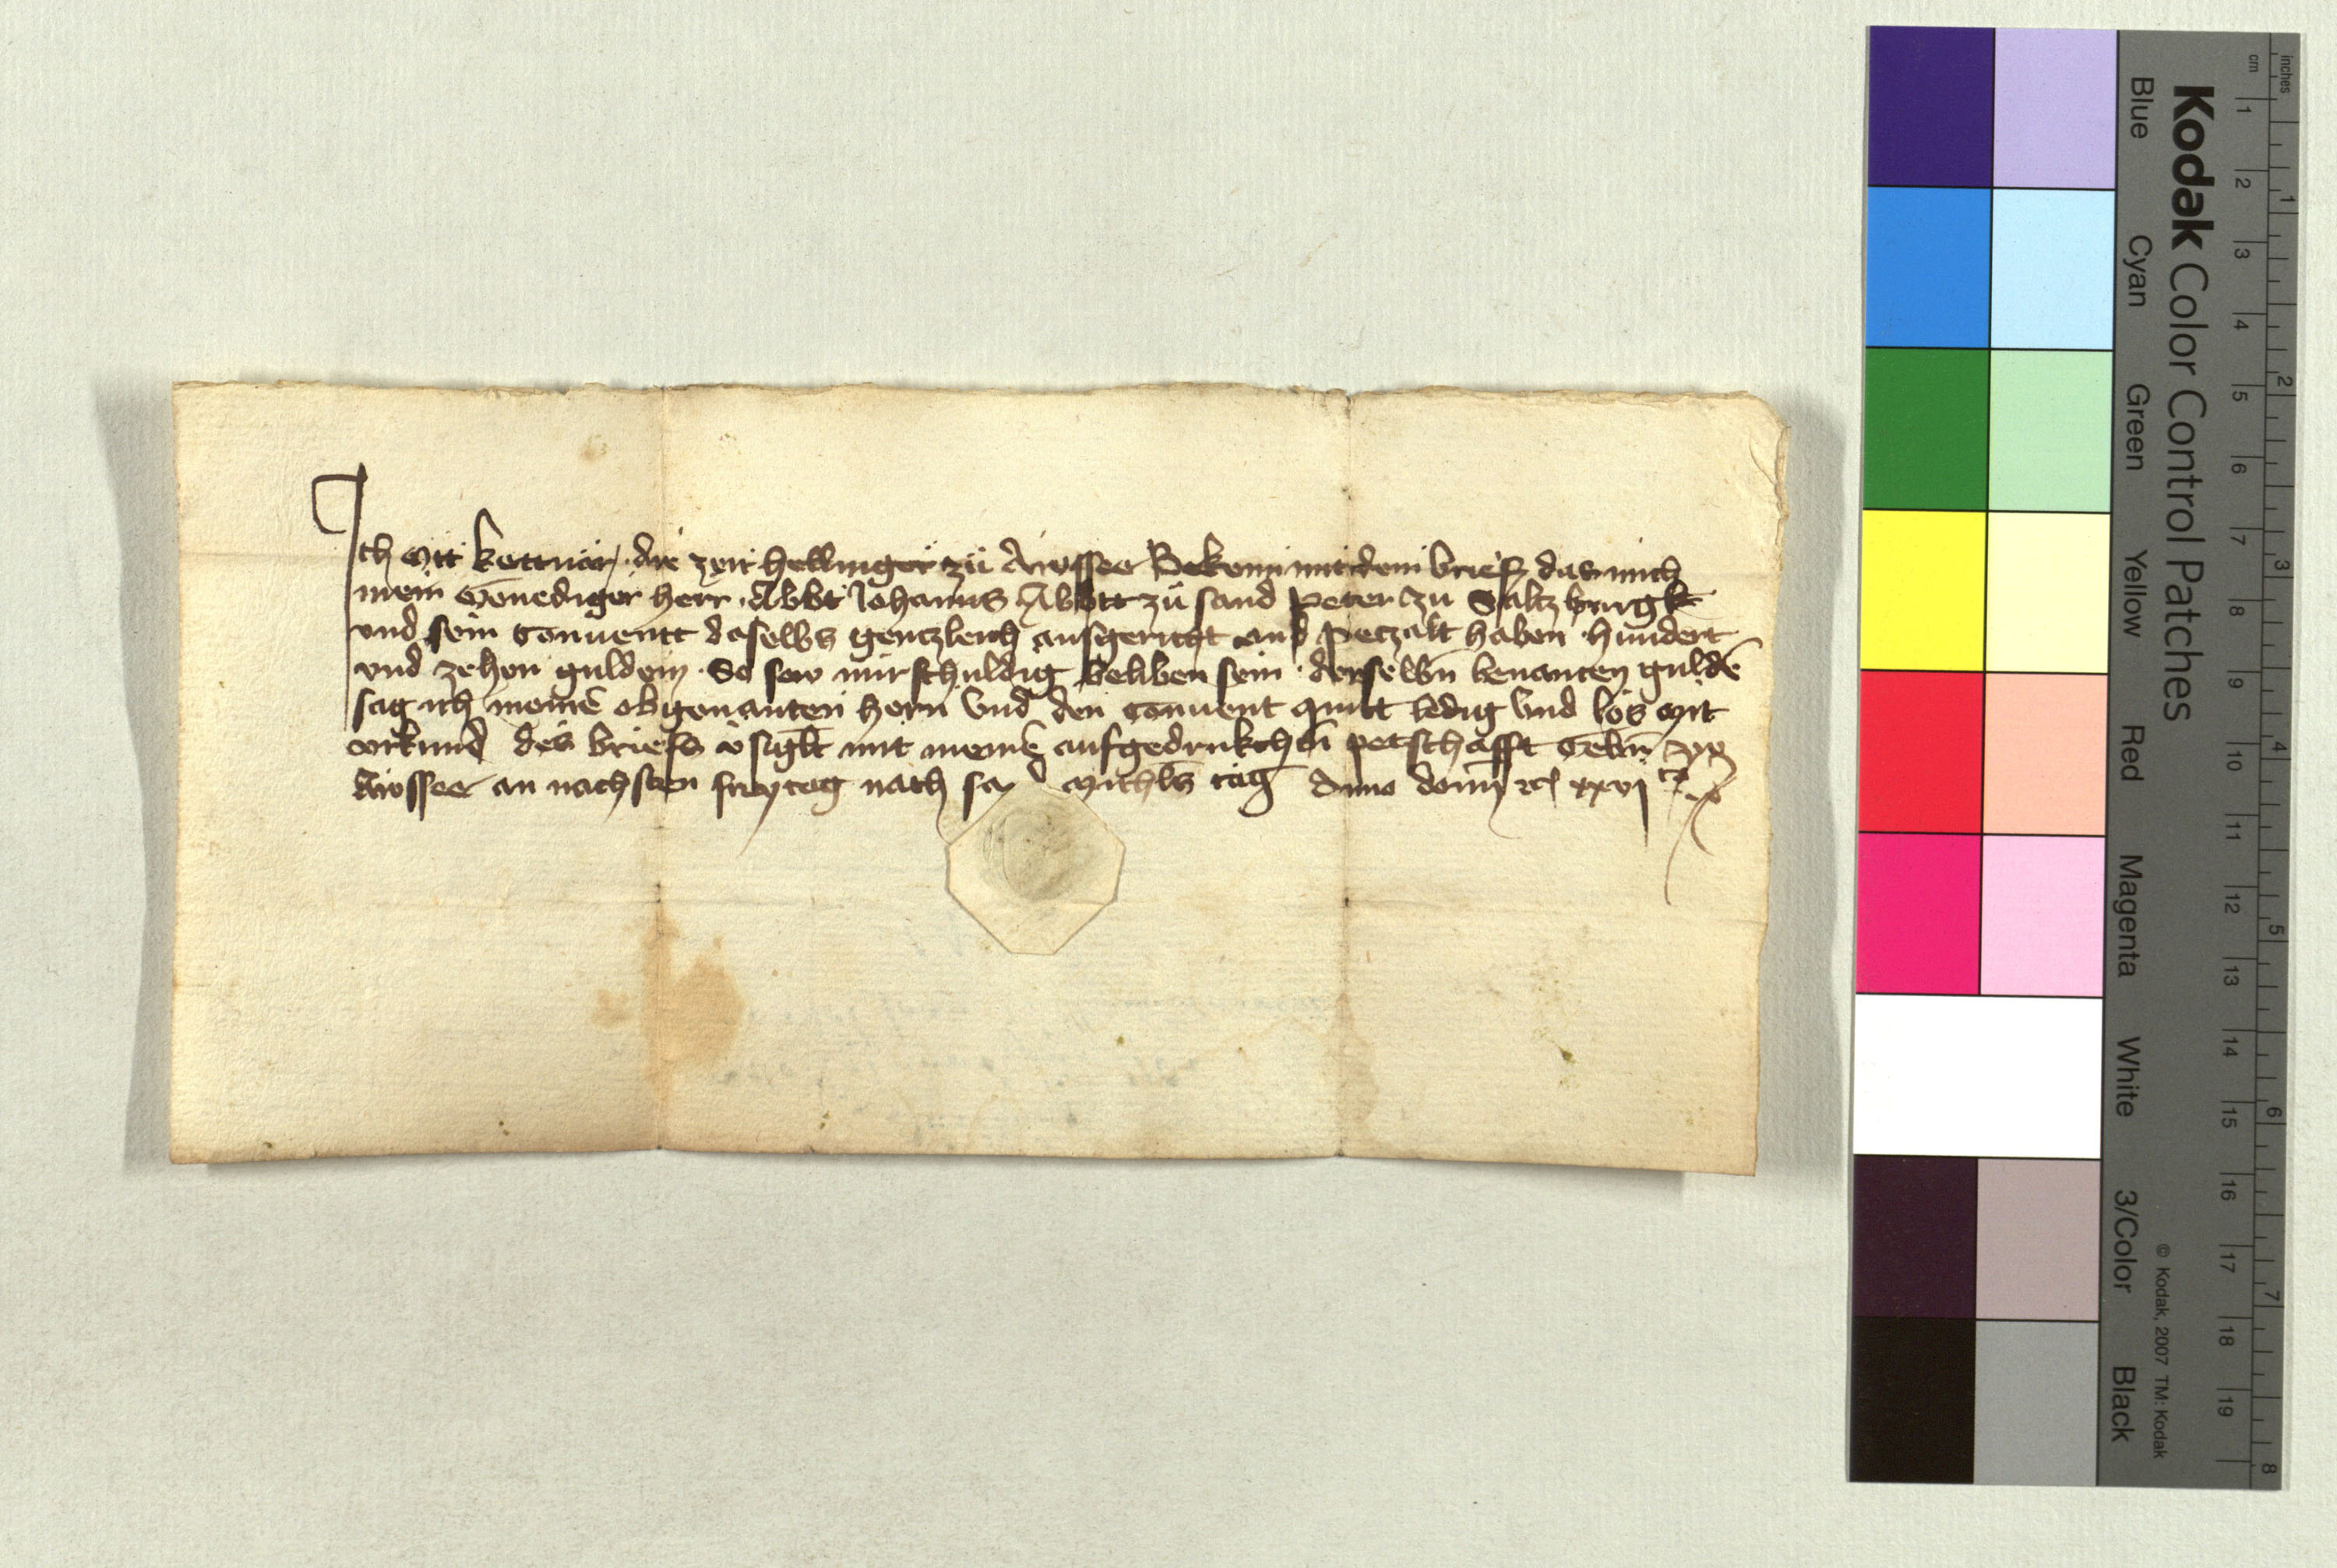 Ich Ott kettnär die zeit hellinger zü Awssee Bekenn mit dem brieff das mich
mein Genediger herr Abbt Johanns Abbtt zü sand peter zu Saltzburgk
vnd sein Conuentt daselbs gentzleich ausgericht vnd petzalt haben hundert
vnd zehen guldein So sew mir schuldig beliben sein derselbñ benanten guldē
sag ich meinē obgenanten hern vnd den Conuent quitt ledig vnd los Mit
vrkund des briefs v̄siglt mit meinē aufgedrukchtñ petschafft Gebñ
Awssee an nachsten freytag nach Michls tag Anno domī xxvi
Kodak Color Control Patches
Blue Cyan Green Yellow Red Magenta White 3/Color Black
© Kodak, 2007 TM: Kodak
cm 1 2 3 4 5 6 7 8 9 10 11 12 13 14 15 16 17 18 19
inches 1 2 3 4 5 6 7 8